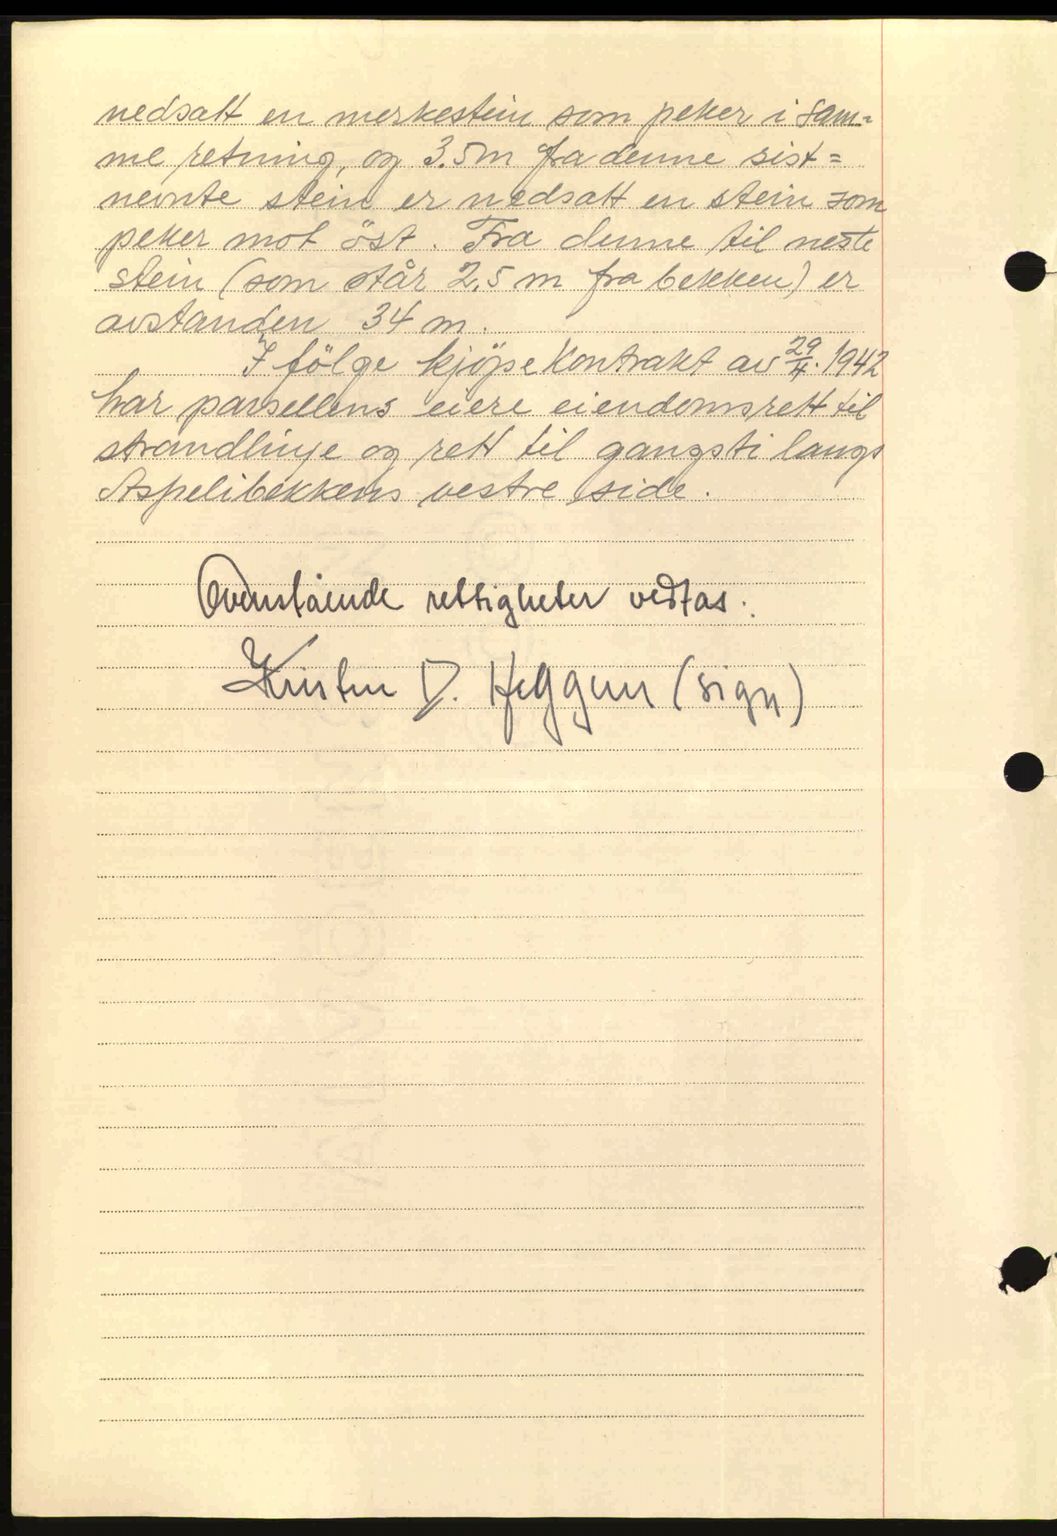 nedsatt en merkestein som peker i sam=
me retning, og 3.5m fra denne sist=
nevnte stein er nedsatt en stein som
peker mot öst. Fra denne til neste
stein (som står 2.5 m fra bekken) er
avstanden 34 m.
I fölge kjöpekontrakt av 29/4. 1942
har parsellens eiere eiendomsrett til
strandlinje og rett til gangsti langs
Aspelibekkens vestre side.
Ovenstående rettigheter vedtas.
Kristen D. Heggen (sign)